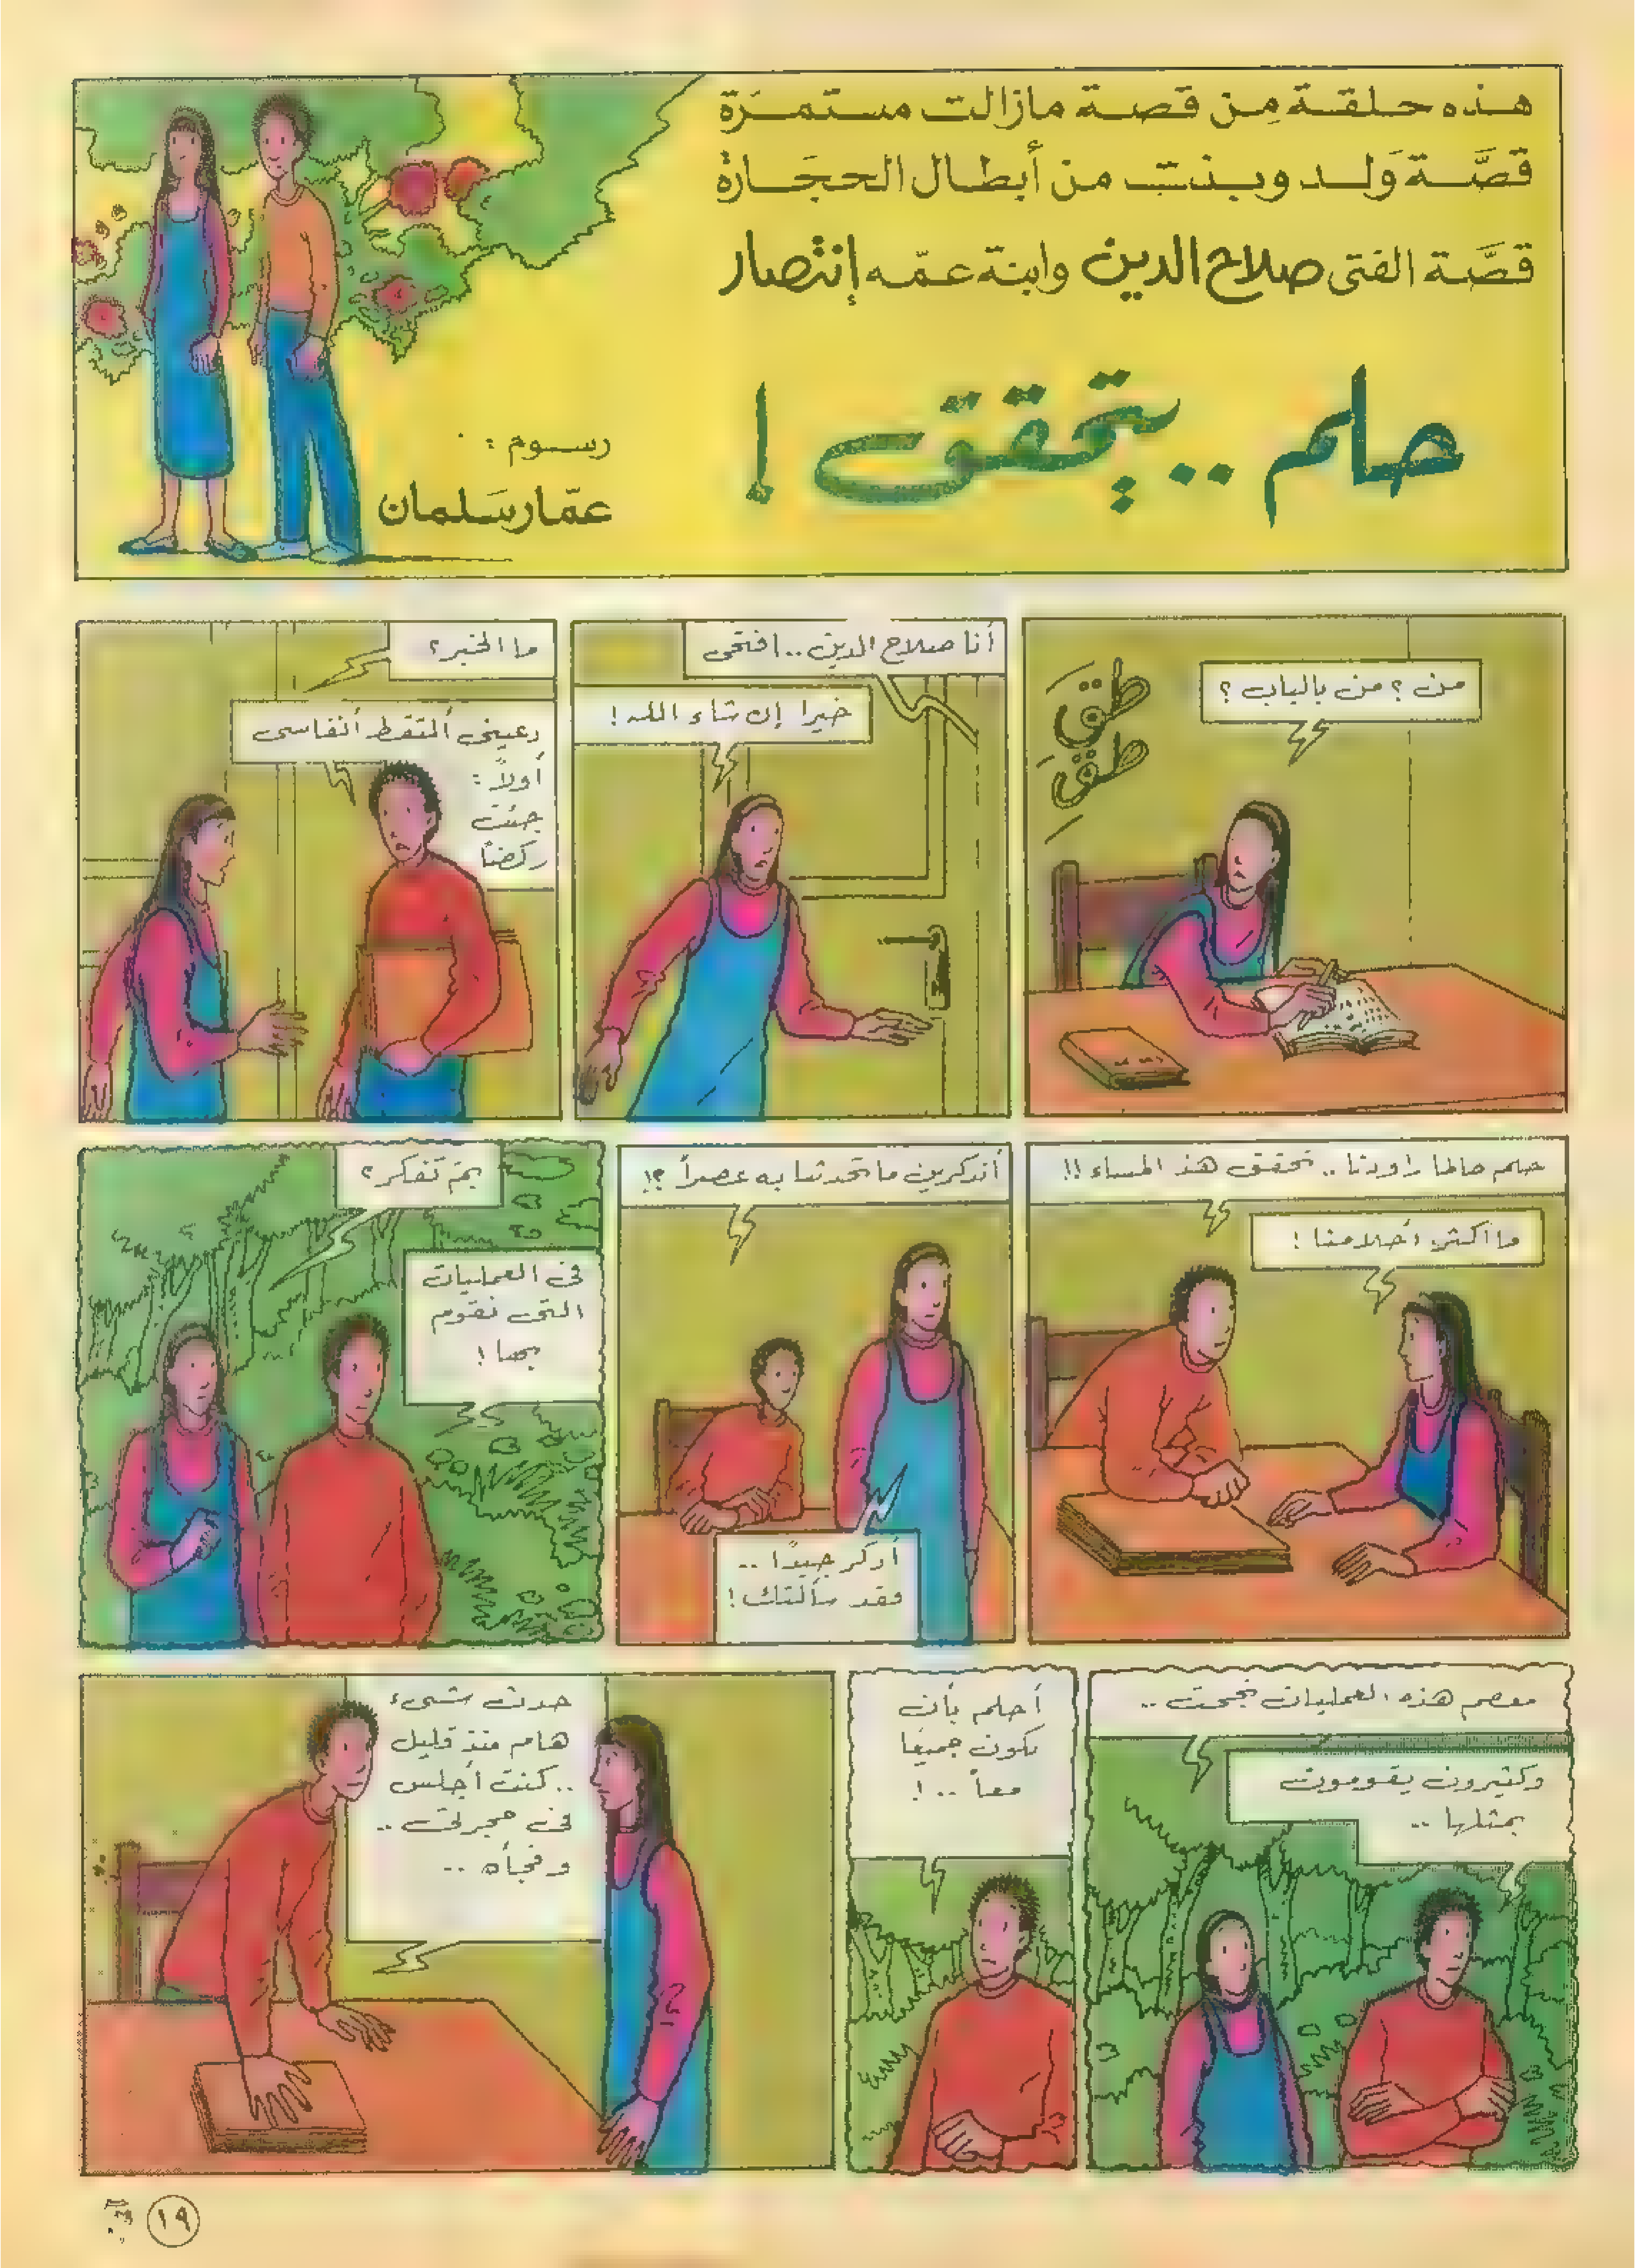 هذه حلقة مِن قصة مازالت مستمرّة
قصَّة وَلد وبنت من أبطال الحجَارة
قصَّة الفتى صلاح الدين وابنة عمّه إنتصار
حلم .. يتحقق !
رسوم :
عمّار سَلمان
من ؟ من بالباب ؟
طق
طق
أنا صلاح الدين .. افتحى
خيرا إن شاء الله !
ما الخبر ؟
دعينى ألتقط أنفاسى
أولاً :
جئت
ركضاً
حلم طالما راودنا .. تحقق هذ المساء !!
ما أكثر أحلامنا !
أتذكرين ما تحدثنا به عصراً ؟!
أذكر جيدًا ..
فقد سألتك !
بم تفكر ؟
فى العمليات
التى نقوم
بها !
معظم هذه العمليات نجحت ..
وكثيرون يقومون
بمثلها ..
أحلم بأن
نكون جميعًا
معاً .. !
حدث شىء
هام منذ قليل
.. كنت أجلس
فى حجرتى ..
وفجأه ..
١٩